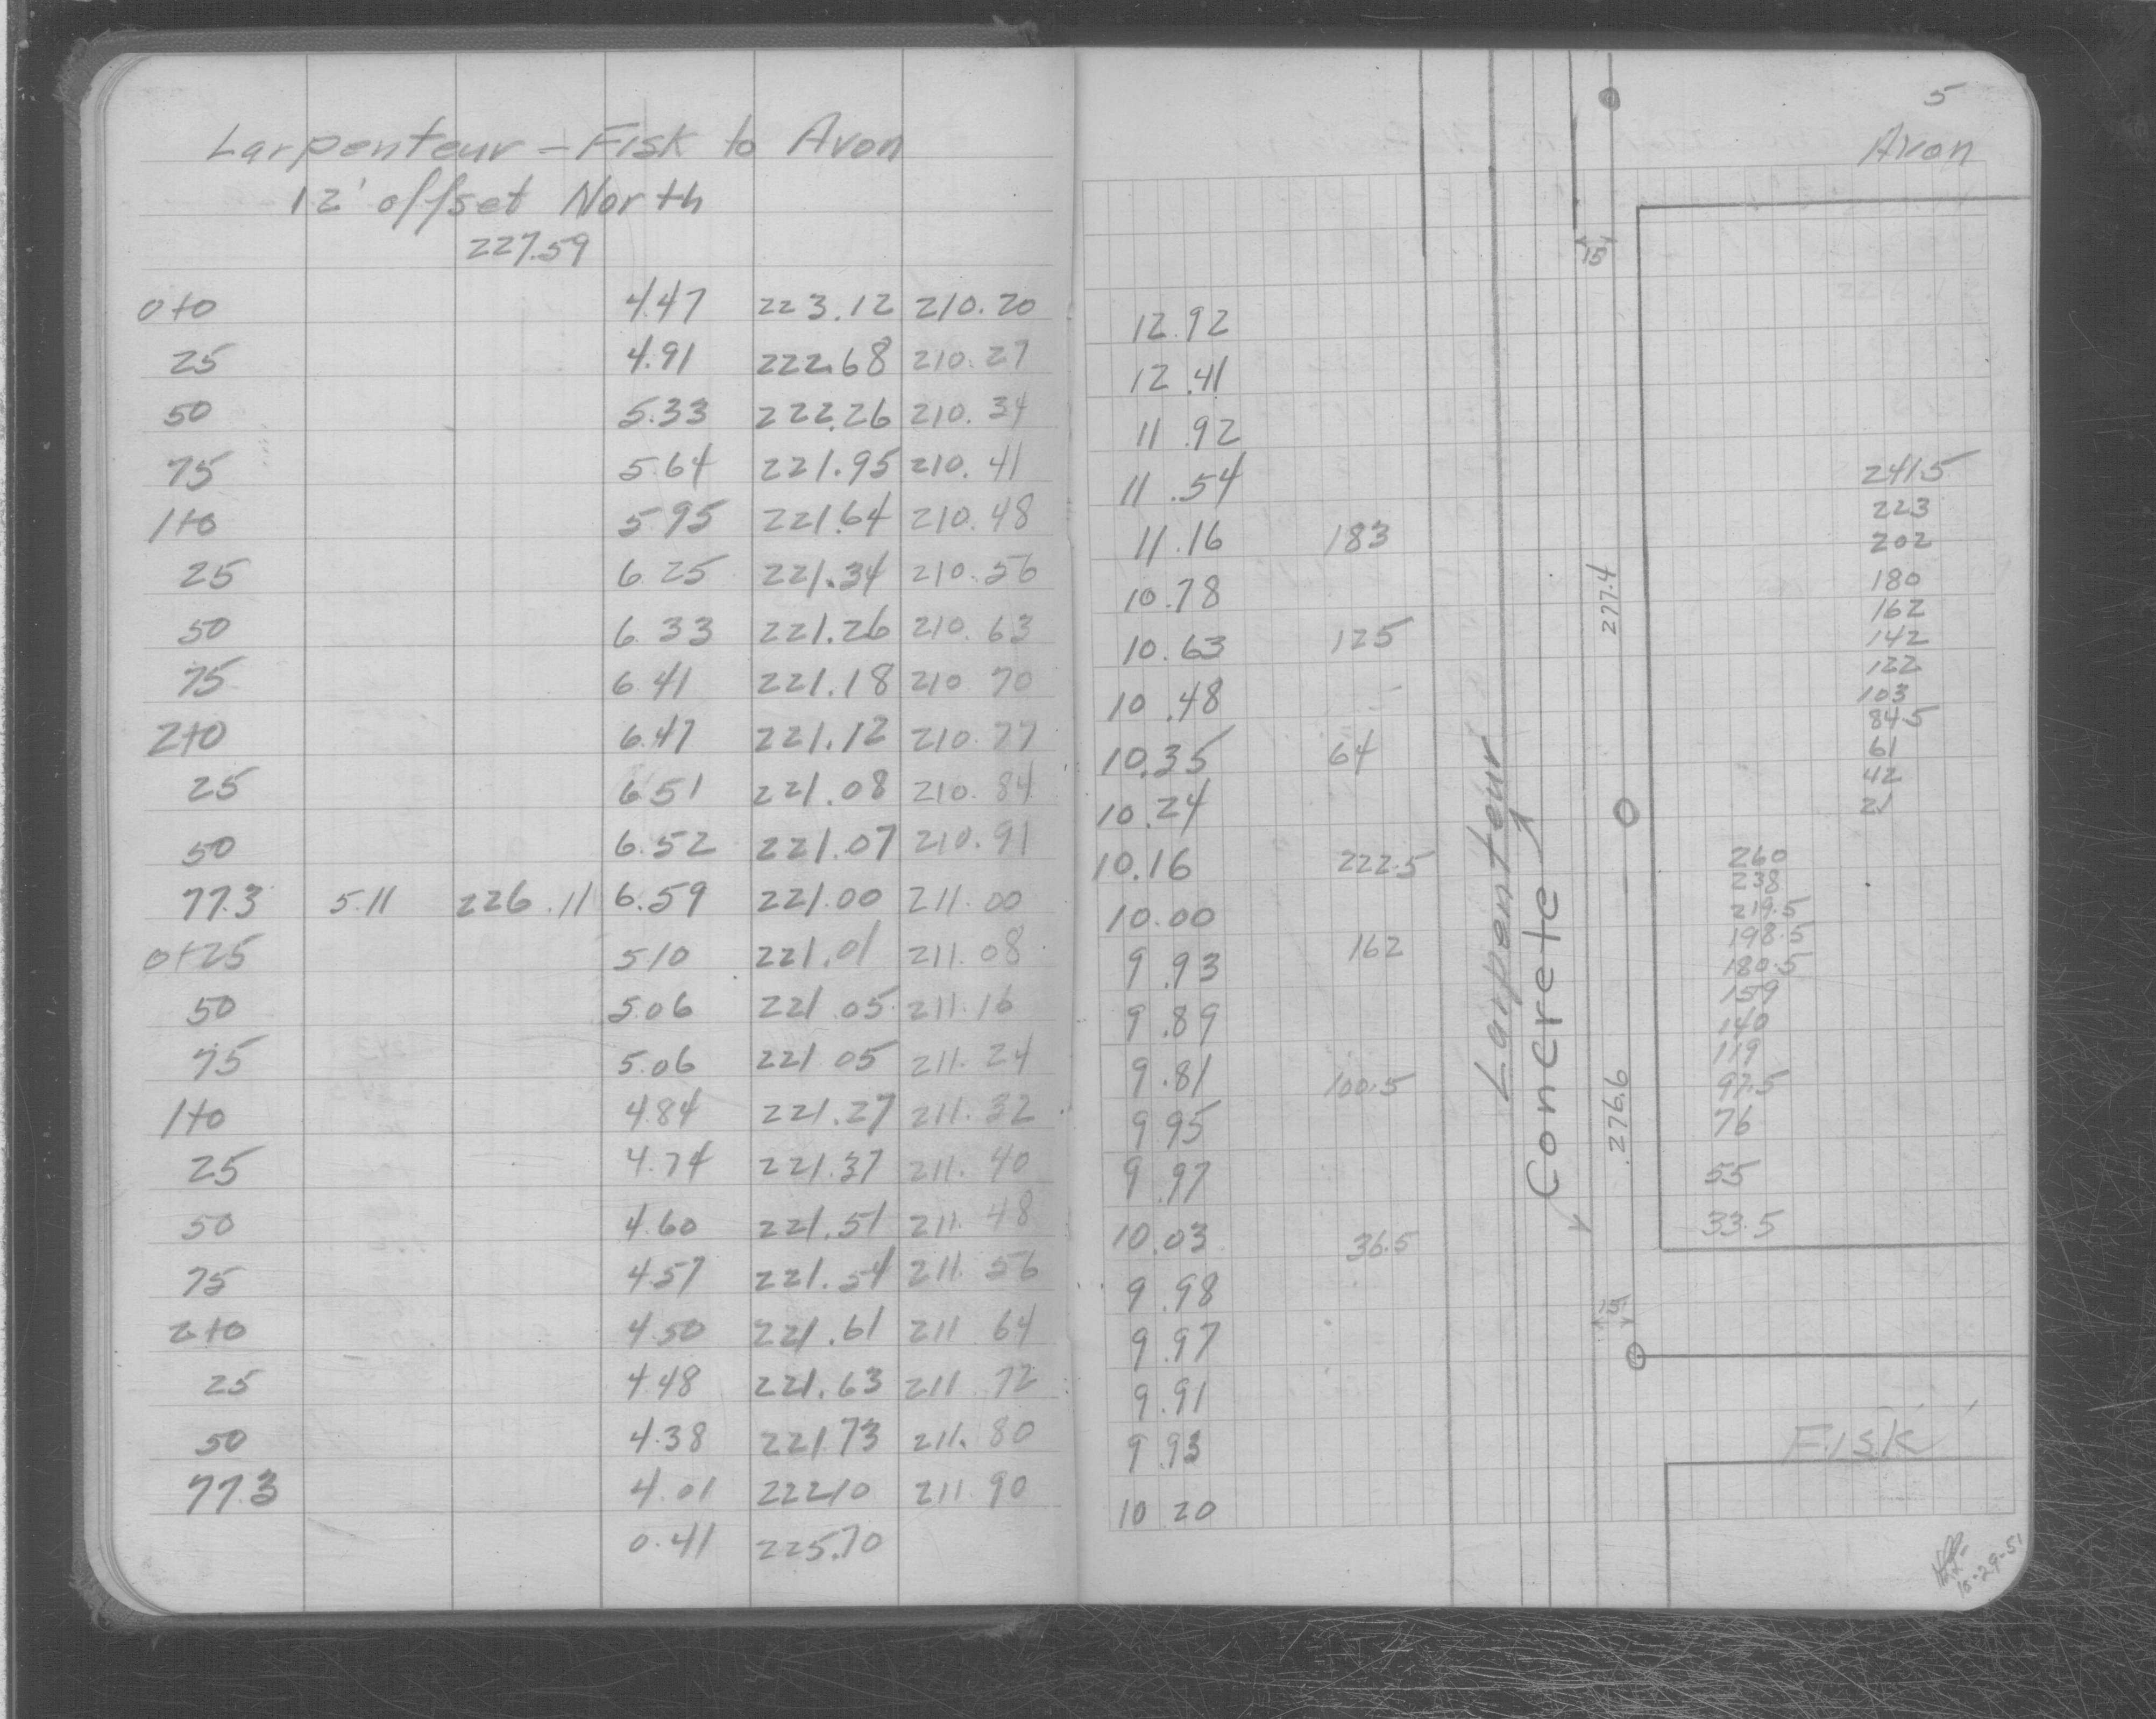 Larpenteur - Fisk to Avon
12' offset North
227.59
0+0 4.47 223.12 210.20
25 4.91 222.68 210.27
50 5.33 222.26 210.34
75 5.64 221.95 210.41
1+0 5.95 221.64 210.48
25 6.25 221.34 210.56
50 6.33 221.26 210.63
75 6.41 221.18 210.70
2+0 6.47 221.12 210.77
25 6.51 221.08 210.84
50 6.52 221.07 210.91
77.3 5.11 226.11 6.59 221.00 211.00
0+25 5.10 221.01 211.08
50 5.06 221.05 211.16
75 5.06 221.05 211.24
1+0 4.84 221.27 211.32
25 4.74 221.37 211.40
50 4.60 221.51 211.48
75 4.57 221.54 211.56
2+0 4.50 221.61 211.64
25 4.48 221.63 211.72
50 4.38 221.73 211.80
77.3 4.01 222.10 211.90
0.41 225.70
5
Avon
15
12.92
12.41
11.92
11.54
11.16 183
10.78
10.63 125
10.48
10.35 64
10.24
10.16 222.5
10.00
9.93 162
9.89
9.81 100.5
9.95
9.97
10.03 36.5
9.98
9.97
9.91
9.93
10.20
Larpenteur
Concrete
277.4
276.6
241.5
223
202
180
162
142
122
103
84.5
61
42
21
260
238
219.5
198.5
180.5
159
140
119
97.5
76
55
33.5
15
Fisk
10-29-51